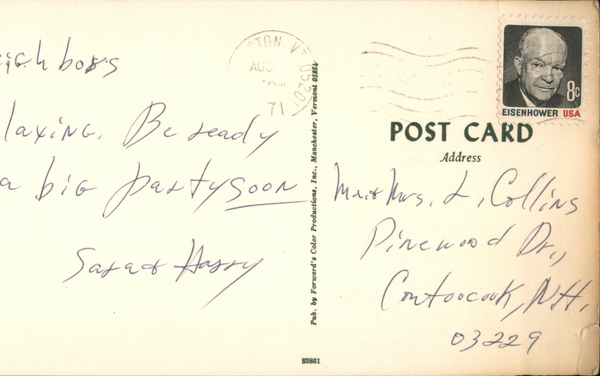 eighbors
laxing. Be ready
a big party soon
Sara & Harry
TON, VT 05201
AUG
71
Pub. by Forward's Color Productions, Inc., Manchester, Vermont 05254
B3861
8c
EISENHOWER USA
POST CARD
Address
Mr & Mrs. L. Collins
Pinewood Dr.,
Contoocook, N.H.
03229